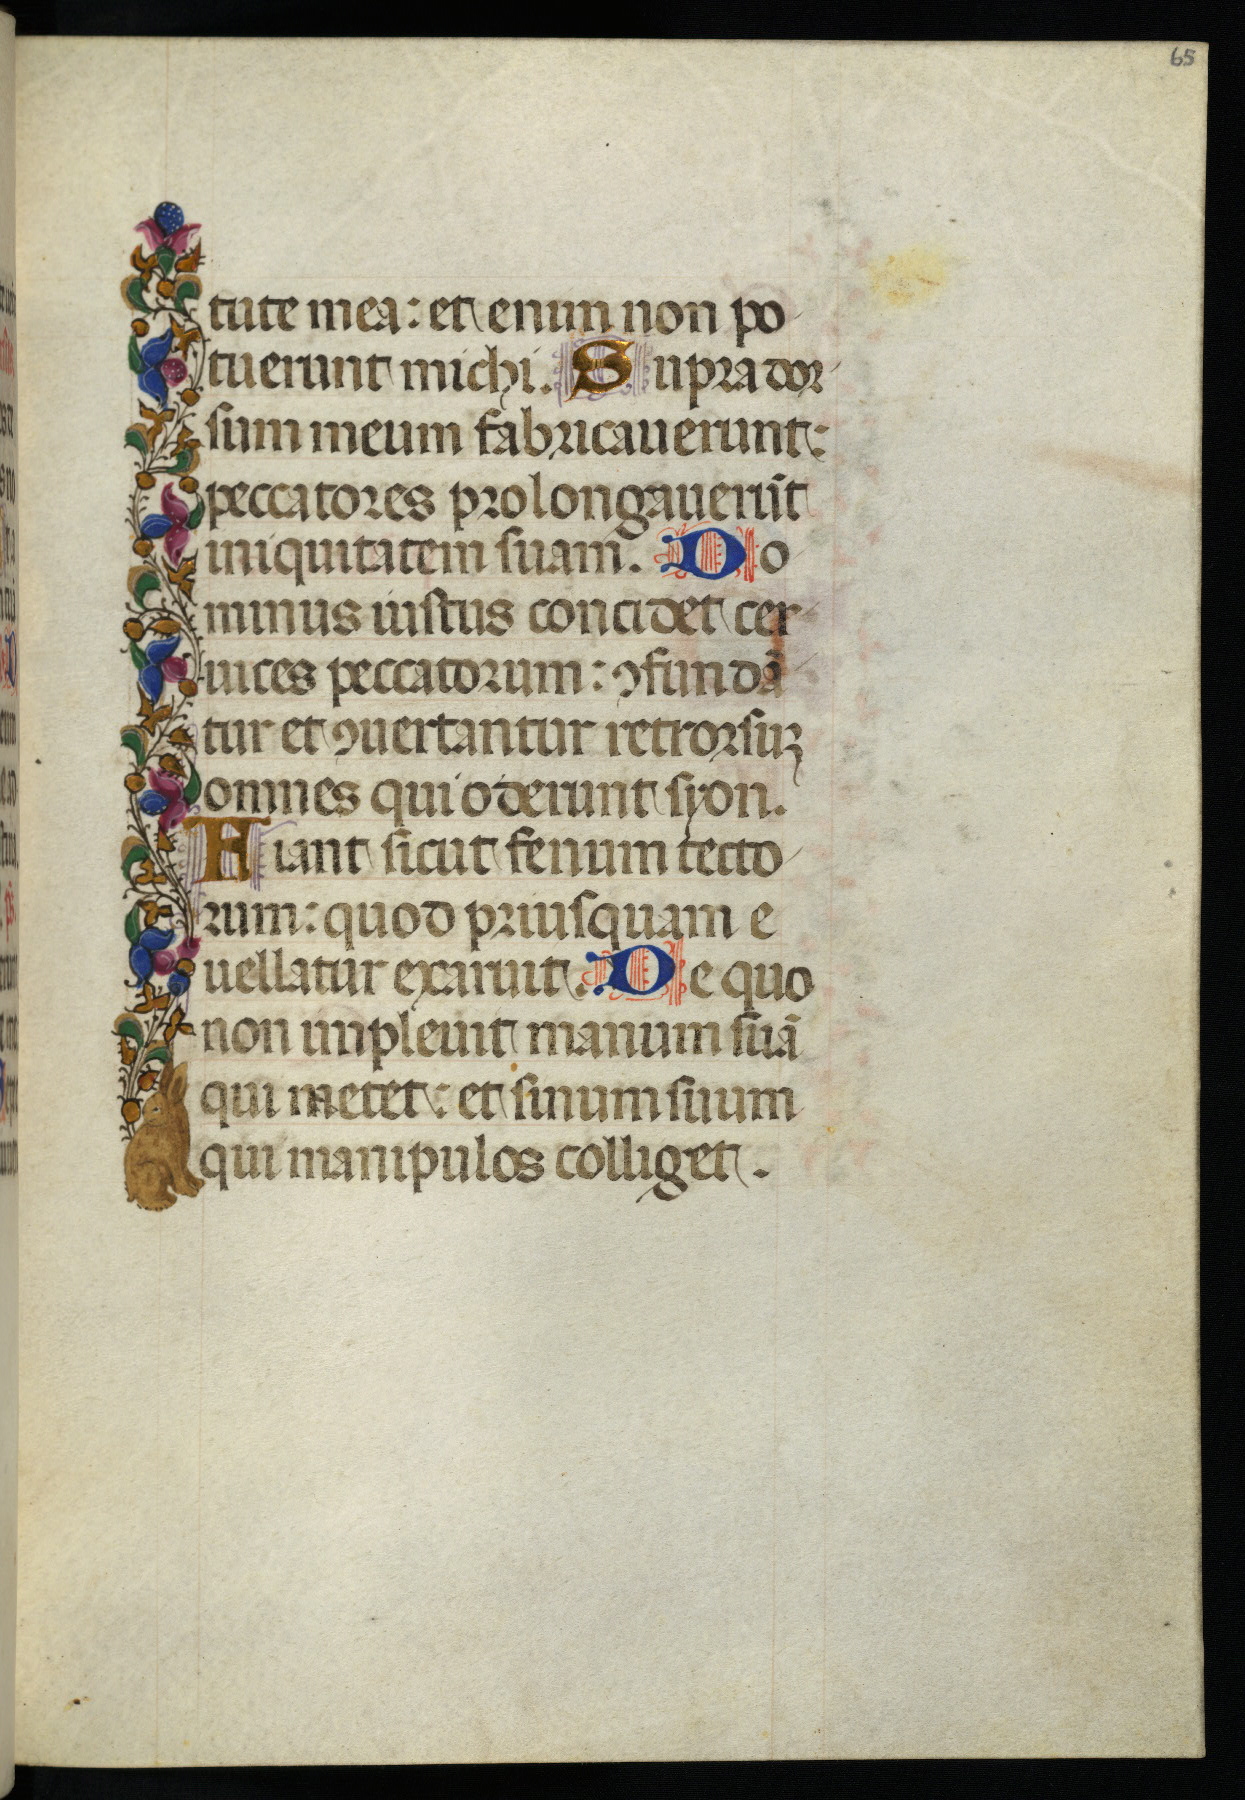 65
tute mea: et enim non po
tuerunt michi. Supra dor
sum meum fabricauerunt:
peccatores prolongauerũt
iniquitatem suam. Do
minus iustus concidet cer
uices peccatorum: ꝯfundã
tur et ꝯuertantur retrorsuꝫ
omnes qui oderunt syon.
Fiant sicut fenum tecto
rum: quod priusquam e
uellatur exaruit. De quo
non impleuit manum suã
qui metet: et sinum suum
qui manipulos colliget.